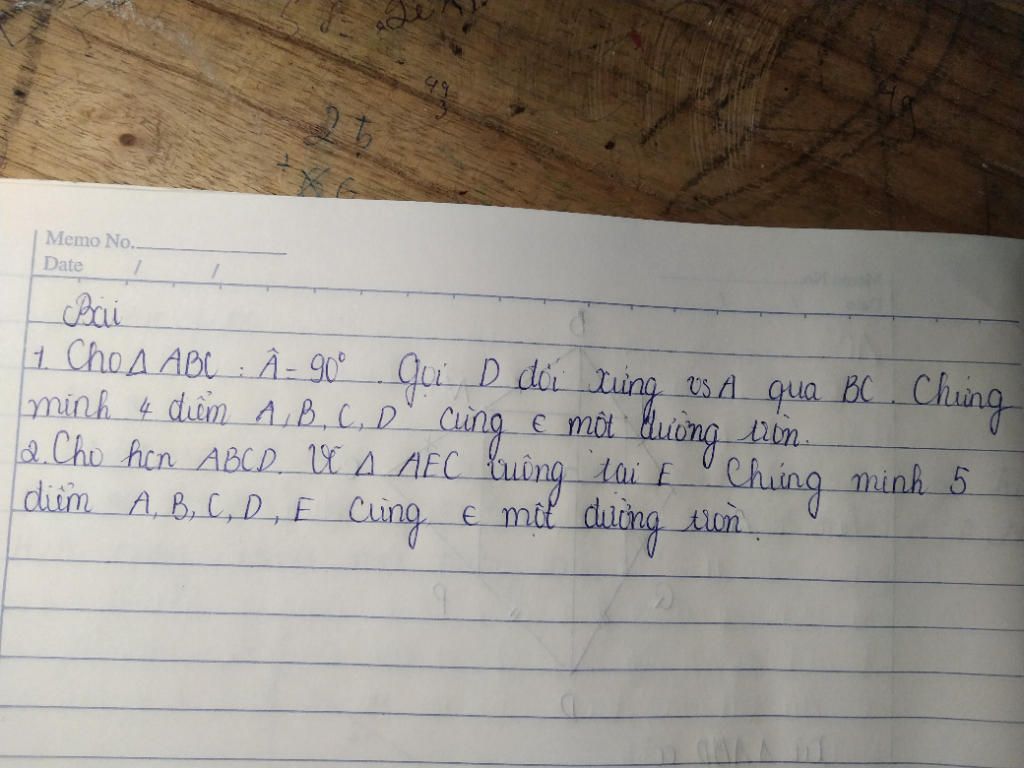 2 t
49
3
49
Memo No.
Date / /
Bài
1. Cho Δ ABC : Â = 90° . Gọi D đối xứng vs A qua BC . Chứng
minh 4 điểm A, B, C, D cùng ∈ một đường tròn.
2. Cho hcn ABCD. Vẽ Δ AEC vuông tại E Chứng minh 5
điểm A, B, C, D, E cùng ∈ một đường tròn.